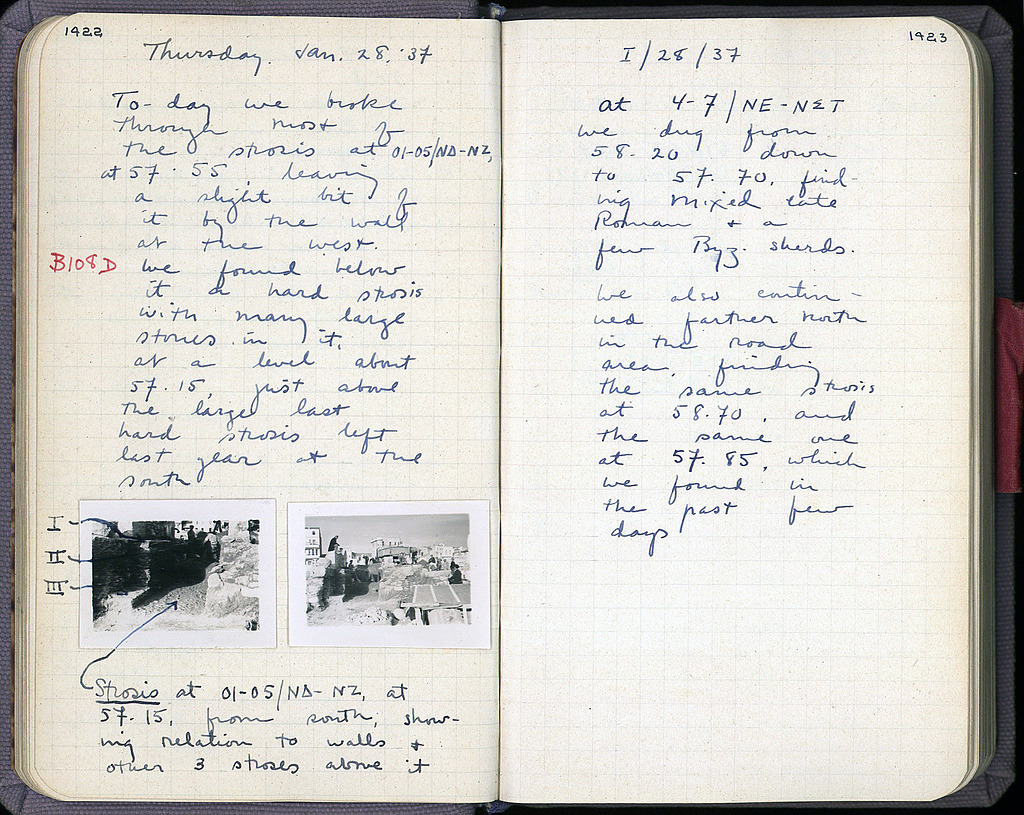 1422
Thursday. Jan. 28, '37
To-day we broke
through most of
the strosis at 01-05/ΝΔ-ΝΖ,
at 57.55, leaving
a slight bit of
it by the wall
at the west.
B108D
We found below
it a hard strosis
with many large
stones in it,
at a level about
57.15, just above
the large last
hard strosis left
last year at the
south
I
II
III
Strosis at 01-05/ΝΔ-ΝΖ, at
57.15, from south, show-
ing relation to walls +
other 3 stroses above it
1423
I/28/37
at 4-7/ΝΕ-ΝΣΤ
we dug from
58.20 down
to 57.70, find-
ing mixed late
Roman + a
few Byz. sherds.
We also contin-
ued farther north
in the road
area, finding
the same strosis
at 58.70, and
the same one
at 57.85, which
we found in
the past few
days